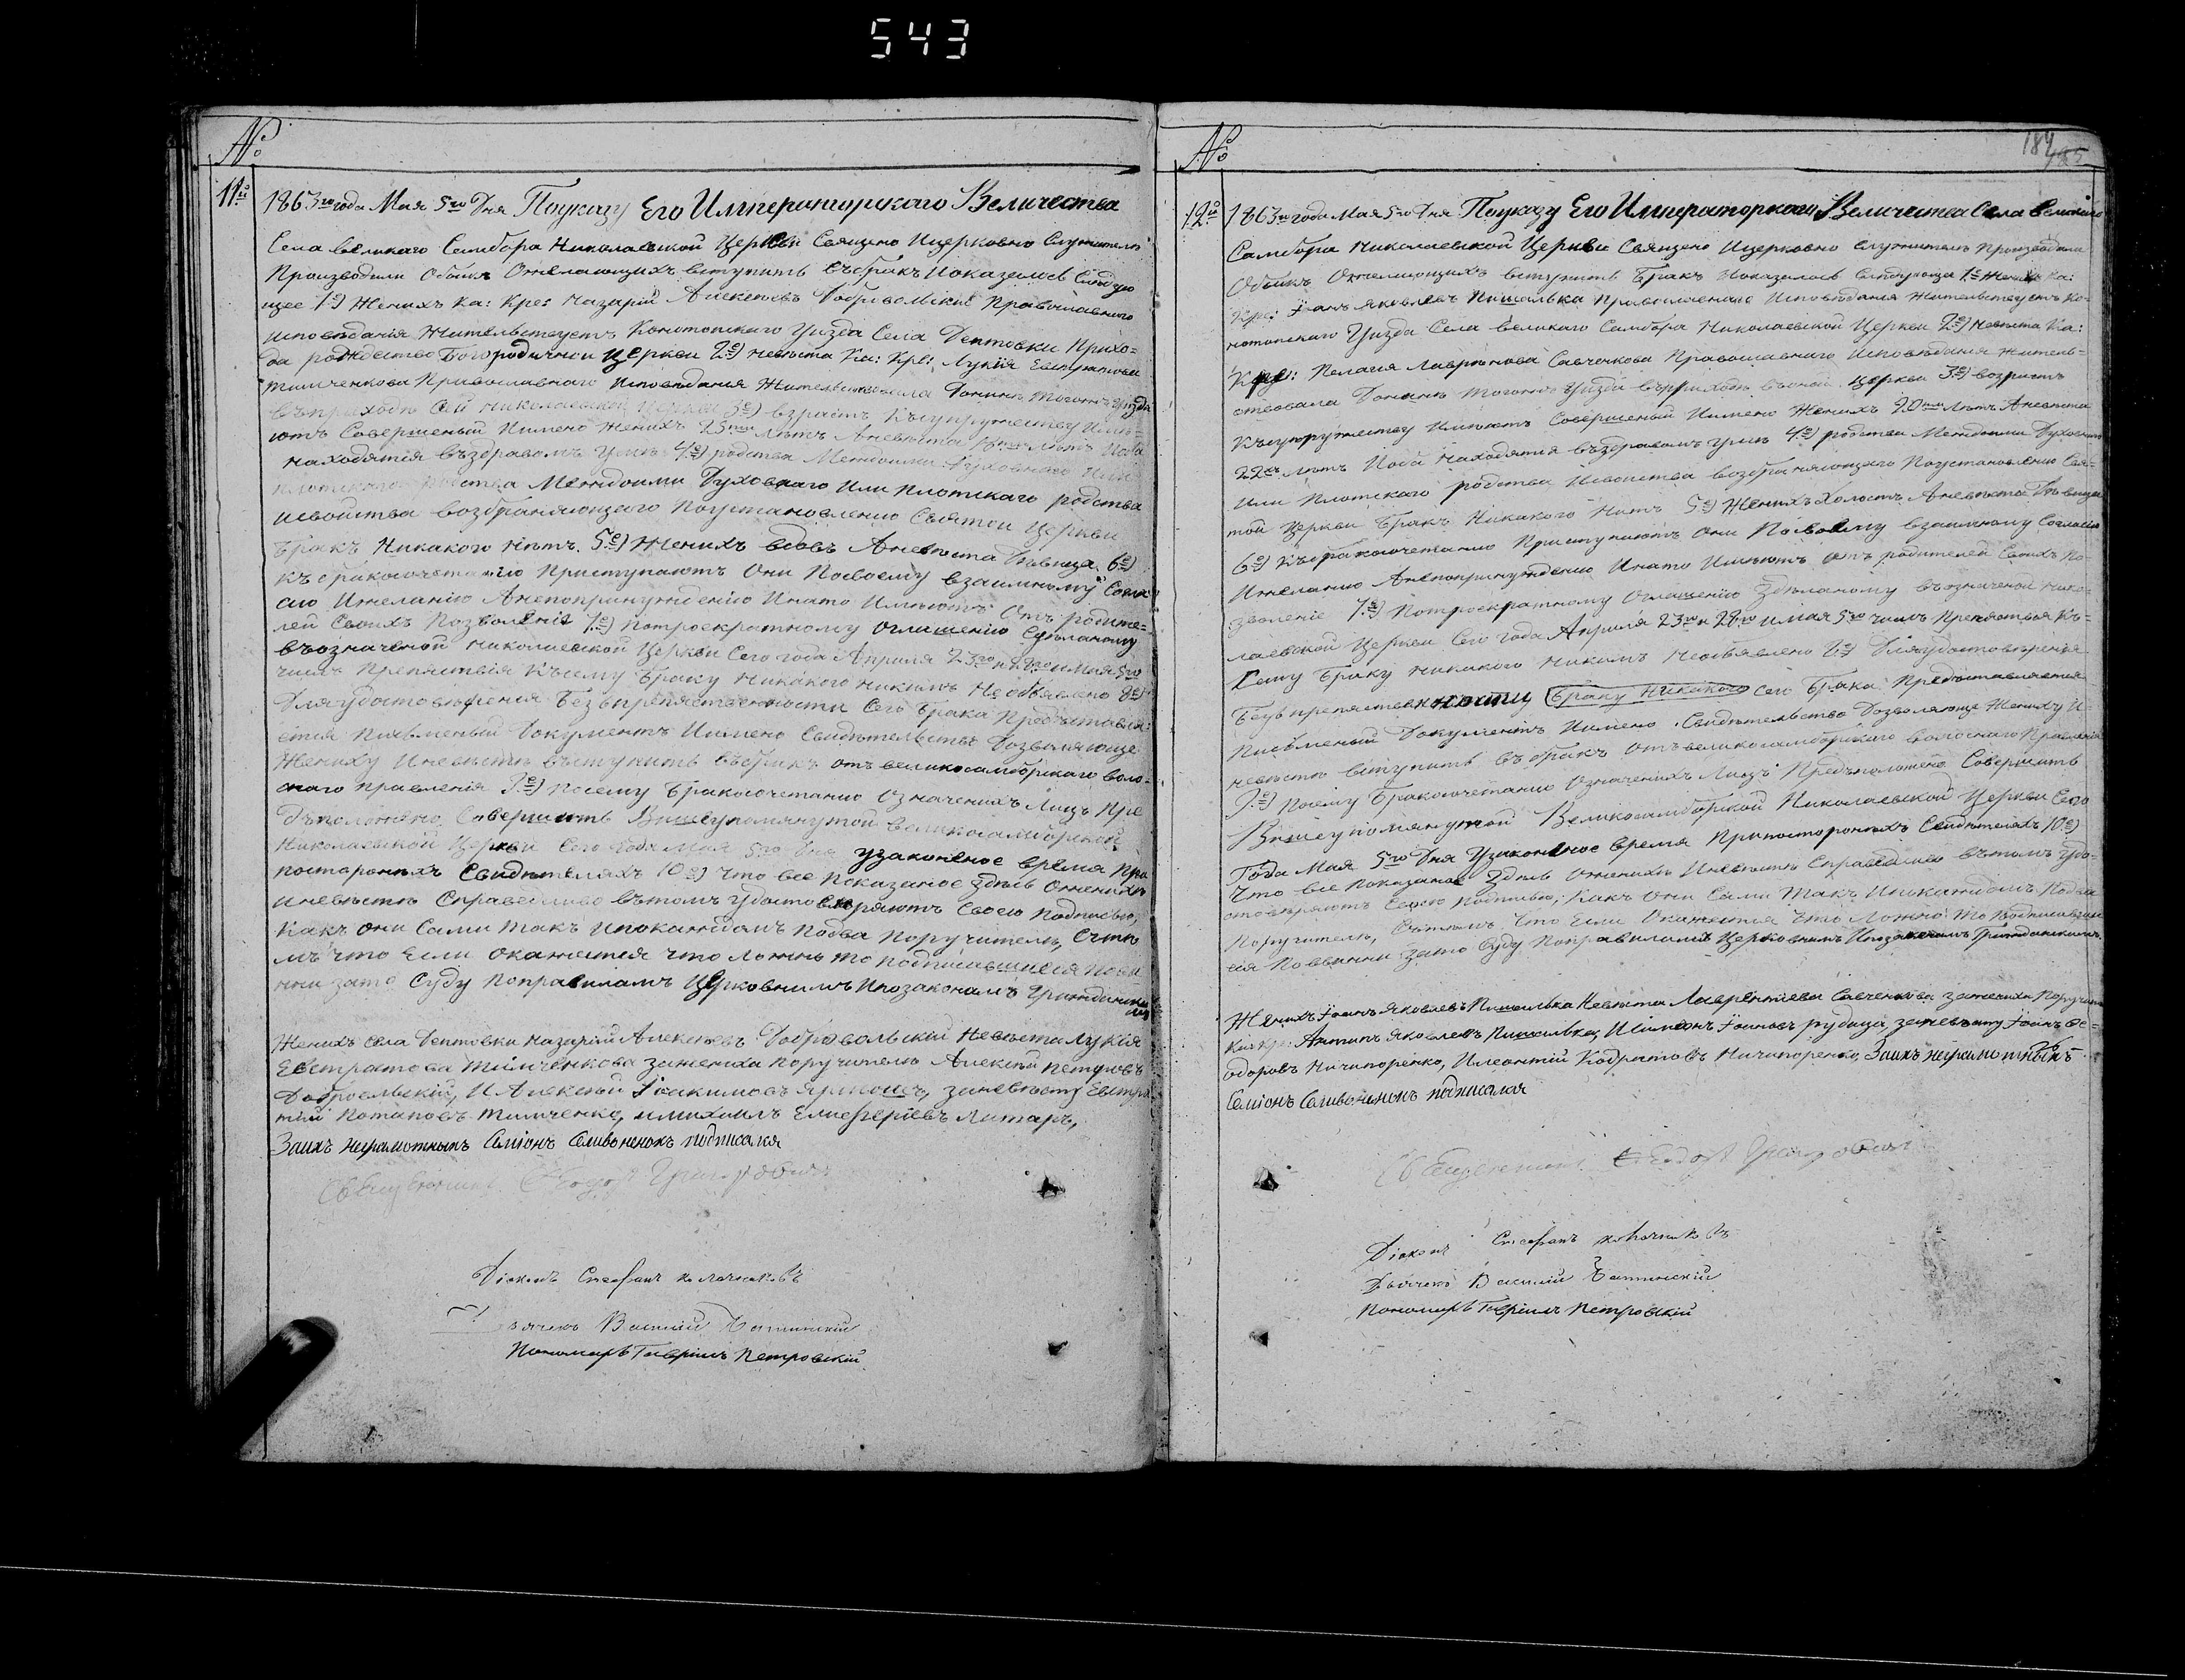 543
№
11й
1863го года Мая 5го Дня Поуказу Его Императорскаго Величества
Села великаго Самбора Николаевской Церкви Священо Ицерковно Служители
Производили Обыскъ Ожелающихъ вступить въбракъ Иоказалось Следую
щее 1е) Женихъ Ка: Кре: Назарій Алексеевъ Добровольскій Православнаго
исповѣданія Жительствуетъ Конотопскаго Уизда Села Дептовки Прихо=
да рождество Богородичной Церкви 2е) невѣста Ка: Кре: Лукія Евстратова
Тимченкова Православнаго Исповѣданія Жительствовала Донинѣ тогожъ Уизда
въприходѣ Сей Николаевской Церкви 3е) взрастъ Късупружеству Имѣ=
ютъ Совершеный Иимено Женихъ 25ти Лѣтъ Аневѣста Лѣтъ Иоба
находятся въздравомъ Умѣ 4е) родства Междоими Духовнаго Или
плотскаго родства Междоими Духовнаго Или плотскаго родства
исвойства возбраняющаго Поустановлению Святой Церкви
бракъ Никакого нѣтъ. 5е) Женихъ вдовъ Аневѣста Дѣвица 6е)
Къ бракосочетанию Приступаютъ Они Посвоему взаимному Согла
сию Ижеланію Анепопринужденію Инато Имѣютъ Отъ родите=
лей Своихъ Позволеніе 7е) Потроекратному Оглашению Сдѣланому
въозначеной Николаевской Церкви Сего года Апреля 23го и 28го иМая 5го
числъ Препяствія Късему браку Никакого Никимъ Необявлено 8е)
Дляудостовѣренія Безпрепяственности Сего брака Предъставля=
ется Письменый Документъ Иимено Свидѣтельство Дозволяюще
Жениху Иневѣстѣ вступить въбракъ отъ великосамборскаго воло=
снаго правленія 9е) Посему Бракосочетанию Означеныхъ Лицъ Пре
дъположено Совершить Вышеупомянутой великосамборской
Николаевской Церкви Сего Года Мая 5го Дня узаконеное время При
посторонныхъ Свидѣтеляхъ 10е) Что все Показаное здѣсь Оженихѣ
Иневѣстѣ Справедливо вътомъ удостовѣряютъ Своею Подписью,
Какъ они Сами Такъ Ипокаждомъ Подва Поручителю, Сътѣ
мъ что Если окажется что Ложнѣ то подписавшиеся Пови
нни зато Суду Поправиламъ Церковнимъ Ипозаконамъ Граждански
мъ
Женихъ села Дептовки Назарій Алексеевъ Добровольскій Невѣста Лукія
Евстратова Тимченкова зажениха поручители Алексѣй Петровъ
Добровольскій, И Алексѣй Іоакимовъ Ярмошъ, заневѣсту Евстра
тій Потаповъ Тимченко, имихаилъ Елиеферіевъ Литаръ,
Заихъ неграмотныхъ Семіонъ Селивоненокъ подписался
Священникъ Феодоръ Григоровичъ
Діяконъ Стефанъ
Дьячекъ Василій
Пономаръ Гавріилъ Петровскій
№
184
185
12й
1863го года Мая 5го Дня Поуказу Его Императорскаго Величества Села Великаго
Самбора Николаевской Церкви Священо Ицерковно Служители Производили
Обыскъ Ожелающихъ вступить Бракъ Иоказалось Следующее 1е Женихъ Ка:
Кре: Іоанъ Яковлевъ Пишолька Православнаго Исповѣданія Жительствуетъ Ко=
нотопскаго Уизда Села Великаго Самбора Николаевской Церкви 2е) Невѣста Ка:
Кре: Пелагія Лаврѣнова Савченкова Православнаго Исповѣданія Житель=
ствовала Донинѣ тогожъ Уизда въприходѣ въоной Церкви 3е) возрастъ
Късупружеству Имѣютъ Совершеный Иимено Женихъ 20ти Лѣтъ Аневѣста
22хъ Лѣтъ Иоба находятся въздравомъ умѣ 4е) родства Междоими Духовнаго
или Плотскаго родства Исвойства возбраняющаго Поустановлению Свя=
той Церкви Бракъ Никакого Нѣтъ 5е) Женихъ Холостъ Аневѣста Дѣвица
6е) Къбракосочетанию Приступаютъ Они Посвоему взаимному Согласию
Ижеланию Анепопринуждению Инато Имѣютъ Отъ родителей Своихъ По=
зволеніе 7е) Потроекратному Оглашению Здѣланому въозначеной Нико=
лаевской Церкви Сего года Апреля 23го и 28го иМая 5го числъ Препятствія Къ=
сему Браку никакого Никимъ Необявлено 8е) Дляудостовѣренія
Безъпрепяственности Браку Никакого Сего Брака Предоставляется
Письменый Документъ Иимено Свидѣтельство Дозволяюще Жениху И=
невѣстѣ вступить въбракъ отъвеликосамборскаго волоснаго Правленія
9е) Посему Бракосочетанию Означеныхъ Лицъ Предъположено Совершить
Вышеупомянутой Великосамборской Николаевской Церкви Сего
Года Мая 5го Дня Узаконеное время Припосторонныхъ Свидѣтеляхъ 10е)
Что все Показаное Здѣсь Оженихѣ Иневѣстѣ Справедливо вътомъ удо=
стовѣряютъ Своею Подписью, Какъ Они Сами Такъ Ипокаждомъ Подва
Поручителю, Сътемъ Что Если Окажется Что Ложно То Подписавши
еся Повинни Зато Суду Поправиламъ Церковнимъ Ипозаконамъ Гражданскимъ.
Женихъ Іоанъ Яковлевъ Пишолька Невѣста Лаврентіева Савченкова зажениха Поручители
Ка: Кре: Антипъ Яковлевъ Пишолька, И Симеонъ Іоановъ рудица, заневѣсту Іоанъ Фе=
одоровъ Ничипоренко, Илеонтій Кодратовъ Ничипоренко, Заихъ неграмотныхъ
Семіонъ Селивоненокъ подписался
Священникъ Феодоръ Григоровичъ
Діяконъ Стефанъ
Дьячекъ Василій
Пономарь Гавріилъ Петровскій